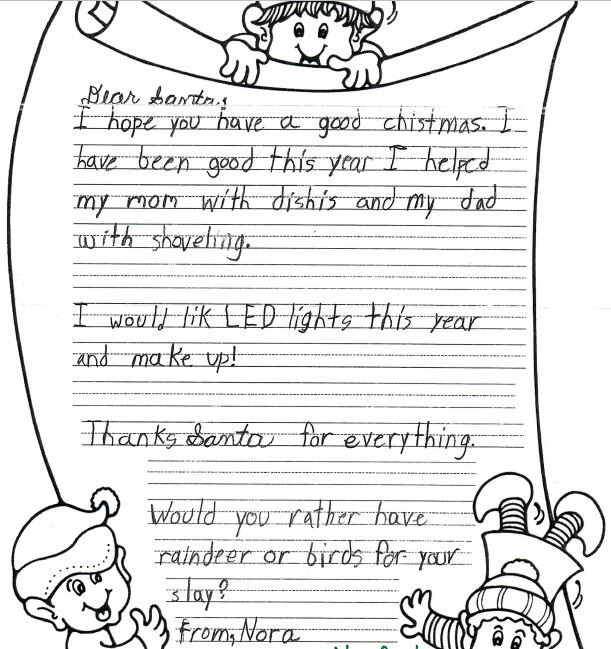 Dear Santa,
I hope you have a good chistmas. I
have been good this year I helped
my mom with dishis and my dad
with shoveling.
I would lik LED lights this year
and make up!
Thanks Santa for everything.
Would you rather have
raindeer or birds for your
slay?
From, Nora